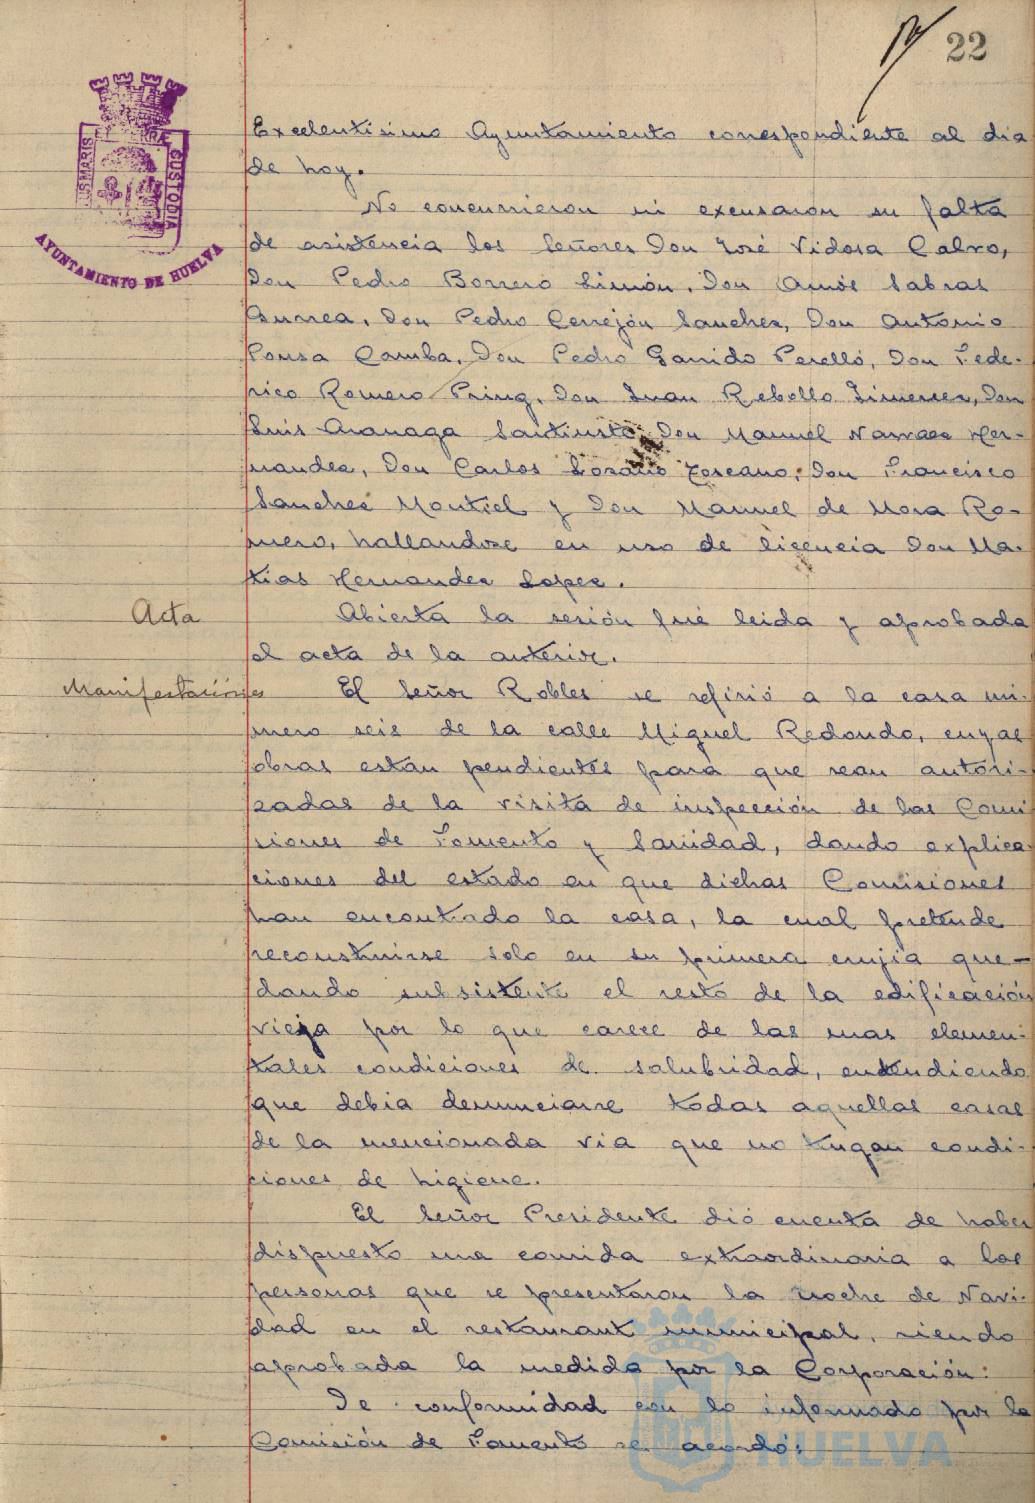 22
US MARIS
CUSTODIA
AYUNTAMIENTO DE HUELVA
Excelentisimo Ayuntamiento correspondiente al dia
de hoy.
No concurrieron ni excusaron su falta
de asistencia los Señores Don José Vidosa Calvo,
Don Pedro Borrero Limón, Don Amós Sabras
Gurrea, Don Pedro Cerrejón Sanchez, Don Antonio
Pousa Camba, Don Pedro Garrido Perelló, Don Fede-
rico Romero Pring, Don Juan Rebollo Jimenez, Don
Luis Aranaga Santiuste, Don Manuel Narvaez Her-
nandez, Don Carlos Lozano Toscano, Don Francisco
Sanchez Montiel y Don Manuel de Mora Ro-
mero, hallandose en uso de licencia Don Ma-
tias Hernandez Lopez.
Acta
Abierta la sesión fué leida y aprobada
el acta de la anterior.
Manifestaciónes
El Señor Robles se refirió a la casa nú-
mero seis de la calle Miguel Redondo, cuyas
obras estan pendientes para que sean autori-
zadas de la visita de inspección de las Comi
siones de Fomento y Sanidad, dando explica-
ciones del estado en que dichas Comisiones
han encontrado la casa, la cual pretende
reconstruirse solo en su primera crujia que-
dando subsistente el resto de la edificación
vieja por lo que carece de las mas elemen-
tales condiciones de salubridad, entendiendo
que debia denunciarse todas aquellas casas
de la mencionada via que no tengan condi-
ciones de higiene.
El Señor Presidente dió cuenta de haber
dispuesto una comida extraordinaria a las
personas que se presentaron la noche de Navi-
dad en el restaurant municipal, siendo
aprobada la medida por la Corporación:
De conformidad con lo informado por la
Comisión de Fomento se acordó:
HUELVA